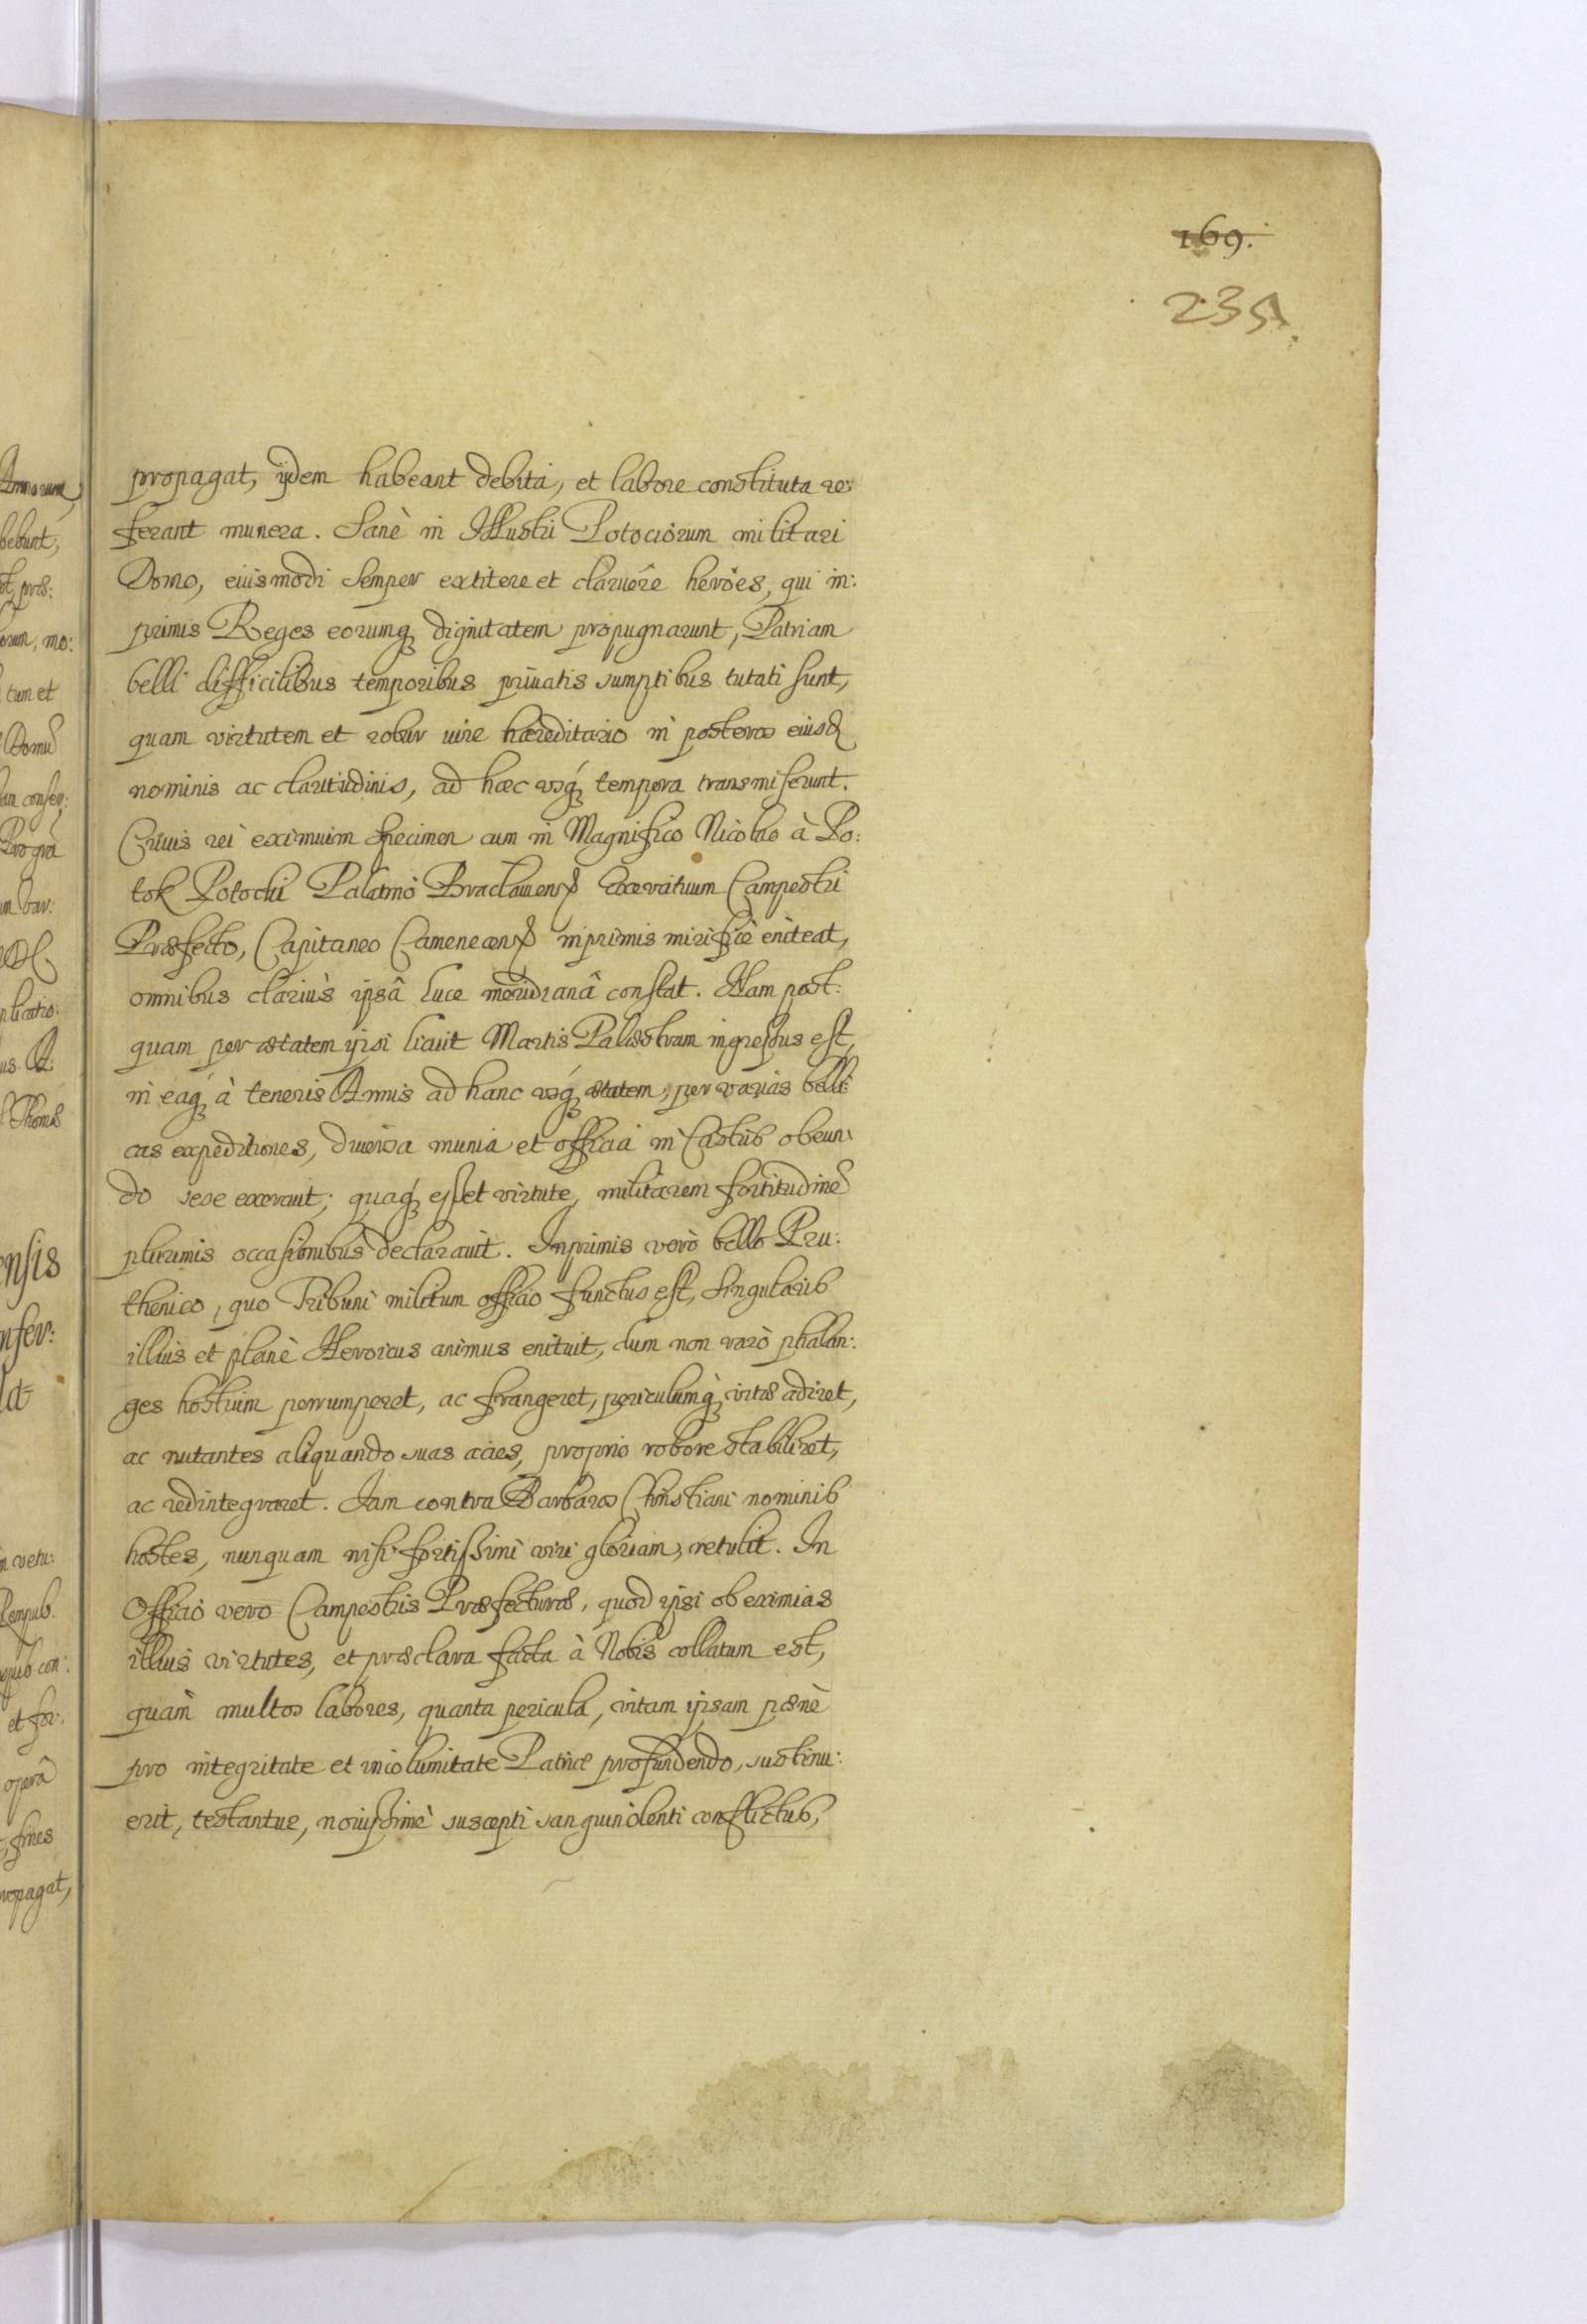 169.
235
propagat, ijdem habeant debita, et labore constituta re:
ferant munera. Sanè in Illustri Potociorum militari
Domo, eiusmodi semper extitere et claruêre heröes, qui in:
primis Reges eorumq́ dignitatem propugnarunt, Patriam
belli difficilibus temporibus priuatis sumptibus tutati sunt,
quam virtutem et robur iure hæreditario in posteros eiusd
nominis ac claritudinis, ad hæc vsq́ tempora transmiserunt.
Cuius rei eximium specimen cum in Magnifico Nicolao à Po:
tok Potocki Palatino Braclauiens Exercituum Campestri
Præfecto, Capitaneo Cameneцens inprimis mirificè eniteat,
omnibus clariùs ipsâ luce meridianâ constat. Nam post:
quam per ætatem ipsi licuit Martis Palæstram ingressus est,
in eaq́ à teneris Annis ad hanc vsq́ ætatem, per varias belli:
cas expeditiones, diuersa munia et officia in Castris obeun:
do sese exercuit; quaq́ esset virtute, militarem fortitudinē
plurimis occasionibus declarauit. Inprimis verò bello Pru:
thenico, quo Tribuni militum officio functus est, singularis
illius et planè Heroicus animus enituit, dum non rarò phalan:
ges hostium perrumperet, ac frangeret, periculumq́ vitæ adiret,
ac nutantes aliquando suas acies, proprio robore stabiliret,
ac redintegraret. Iam contra Barbaros Christiani nominis
hostes, nunquam nisi fortissimi viri gloriam, retulit. In
Officio vero Campestris Præfecturæ, quod ipsi ob eximias
illius virtutes, et præclara facta à Nobis collatum est,
quàm multos labores, quanta pericula, vitam ipsam pænè
pro integritate et incolumitate Patriæ profundendo, sustinu:
erit, testantur, nouissimè suscepti sanguinolenti conflictus,